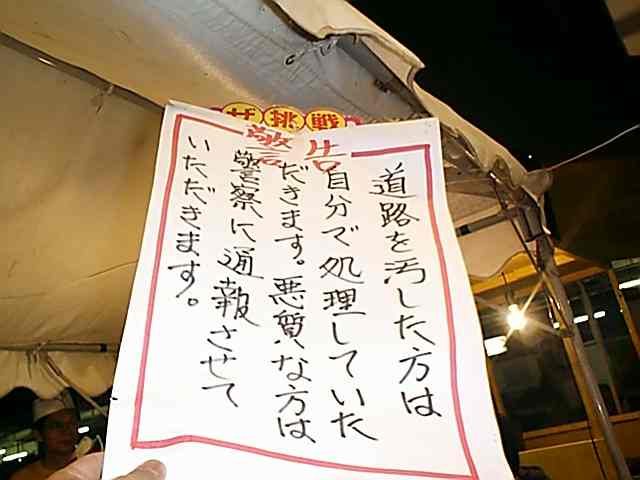 ザ挑戦
警告
道路を汚した方は
自分で処理していた
だきます。悪質な方は
警察に通報させて
いただきます。